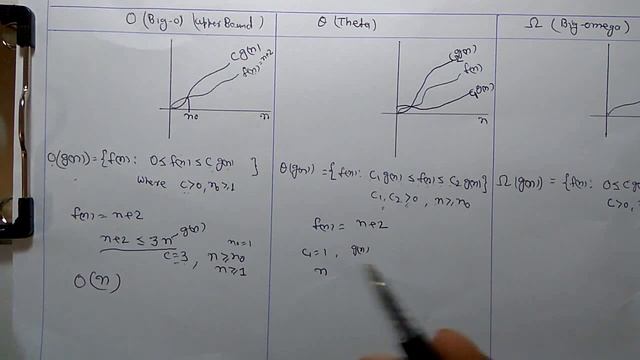 O (Big-O) (Upper Bound)
C g(n)
f(n)=n+2
n₀
n
O(g(n)) = {f(n): 0 ≤ f(n) ≤ C g(n) }
where C>0, n₀≥1
f(n) = n+2
n+2 ≤ 3n g(n)
n₀=1
C=3, n≥n₀
n≥1
O(n)
θ (Theta)
C₂g(n)
f(n)
C₁g(n)
n
θ(g(n)) = {f(n): C₁ g(n) ≤ f(n) ≤ C₂ g(n)}
C₁, C₂>0, n≥n₀
f(n) = n+2
C₁=1, g(n)
n
Ω (Big-omega)
Ω(g(n)) = {f(n): 0≤ C g(n)
C>0,